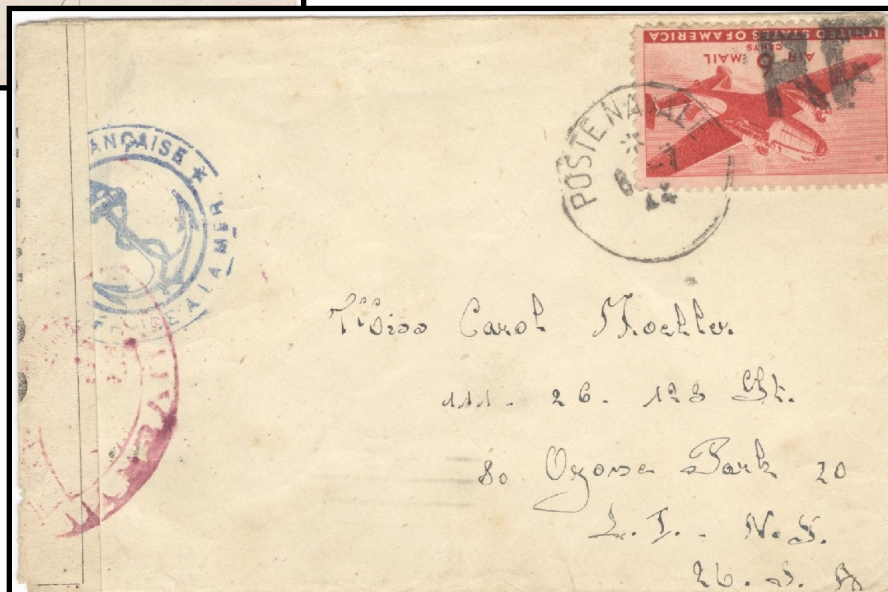 UNITED STATES OF AMERICA
AIR MAIL
6
CENTS
POSTE NAVALE
6-7
44
ANÇAISE ★
A LA MER
OUVERT
Miss Carol Moeller.
111. 26. 123 St.
So Ozone Park 20
L.I. N.Y.
U.S.A